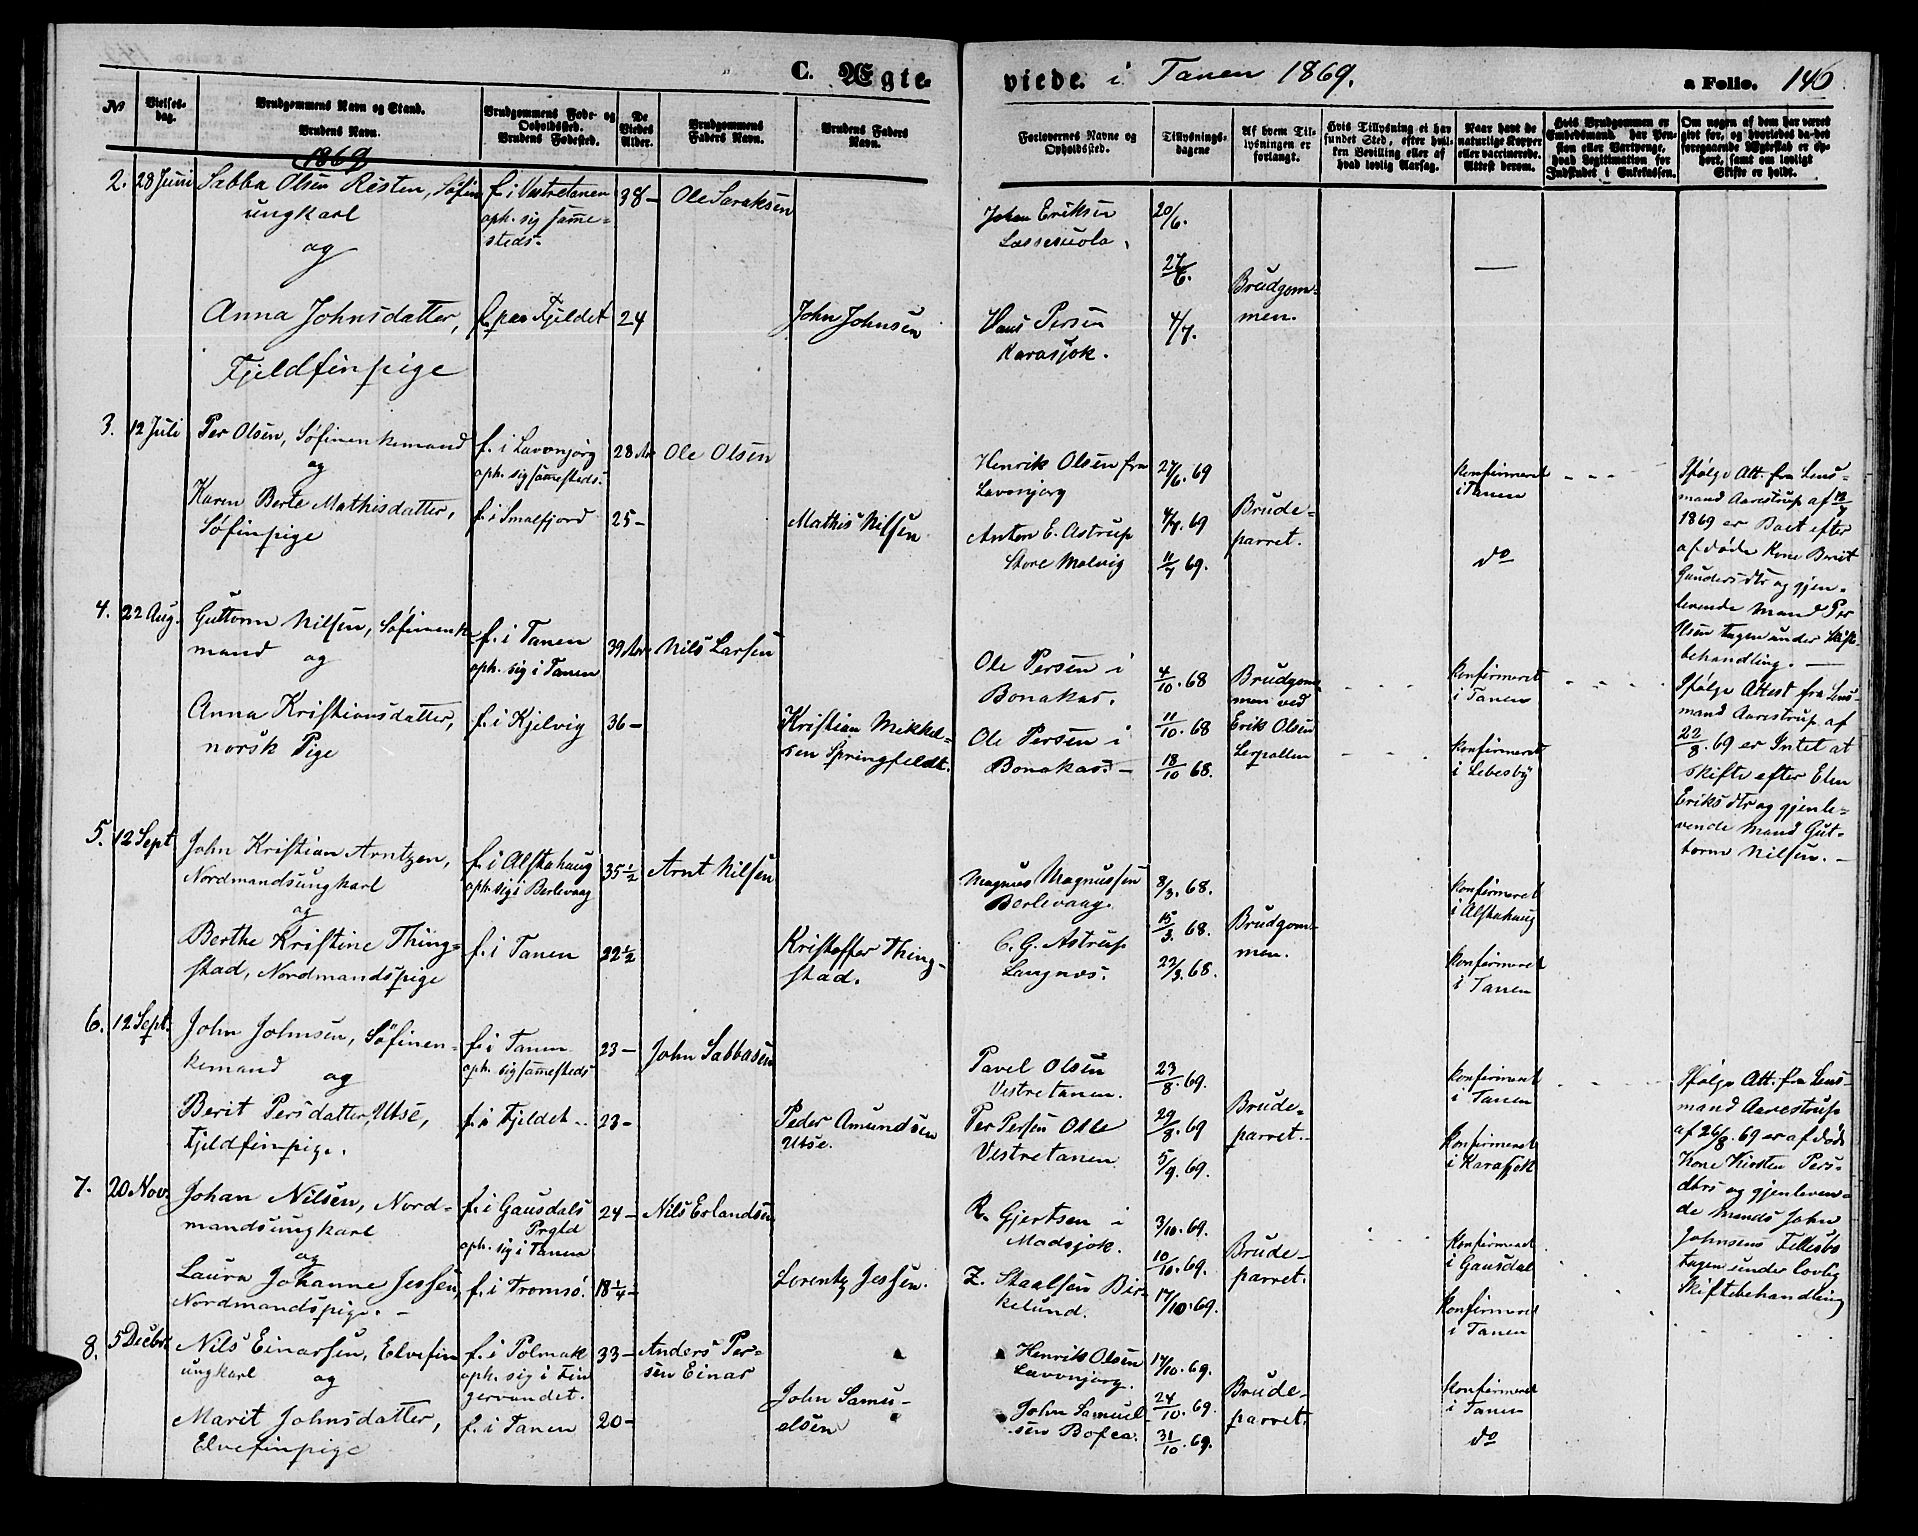 C. Ægte-
viede. i Tanen 1869.
a Folio. 146
No
Vielses-
dag.
Brudgommens Navn og Stand.
Brudens Navn.
Brudgommens Føde- og
Opholdssted.
Brudens Fødested.
De
Viedes
Alder.
Brudgommens
Faders Navn.
Brudens Faders
Navn.
Forlovernes Navne og
Opholdssted.
Tillysnings-
dagene
Af hvem Til-
lysningen er
forlangt.
Hvis Tillysning ei har
fundet Sted, efter hvil-
ken Bevilling eller af
hvad lovlig Aarsag.
Naar havt de
naturlige Kopper
eller vaccinerede.
Attest derom.
Hvis Brudgommen er
Embedsmand, har Pen-
sion eller Vartpenge,
hvad Legitimation for
Indskudet i Enkekassen.
Om nogen af dem har været
gift før, og hvorledes da det
foregaaende Ægteskab er op-
hørt, samt om lovligt
Skifte er holdt.
1869
2. 28 Juni
Sabba Olsen Risten, Søfin
ungkarl
og
Anna Johnsdatter,
Fjeldfinpige
f. i Vestretanen
oph. sig samme-
steds.
f. paa Fjeldet
38 –
24
Ole Saraksen
John Johnsen
Johan Eriksen
Hans Persen
Karasjok.
20/6.
27/6.
4/7.
Brudgom-
men.
—
3. 12 Juli
Per Olsen, Søfinenkemand
og
Karen Berte Mathisdatter,
Søfinpige
f. i Lavvonjorg
oph. sig sammesteds.
f. i Smalfjord
28 Aar
25 –
Ole Olsen
Mathis Nilsen
Henrik Olsen fra
Lavvonjorg
Anton E. Astrup
Store Molvig
27/6. 69
4/7. 69
11/7 69.
Brude-
parret.
Konfirmeret
i Tanen
do
Ifølge Att. fra Lens-
mand Aarestrup af 12/7
1869 er Boet efter
afdøde Kone Berit
Gundersdtr og gjen-
levende Mand Per
Olsen tagen under Skifte-
behandling. —
4. 22 Aug.
Guttorm Nilsen, Søfinenke-
mand og
Anna Kristiansdatter,
norsk Pige
f. i Tanen
oph. sig i Tanen
f. i Kjelvig
39 Aar
36 –
Nils Larsen
Kristian Mikkel-
sen Springfeldt.
Ole Persen i
Bonakas.
Ole Persen i
Bonakas. –
4/10. 68
11/10. 68
18/10 68.
Brudgom-
men ved
Erik Olsen
Lerpollen
Konfirmeret
i Tanen
Konfirmeret
i Lebesby
Ifølge Attest fra Lens-
mand Aarestrup af
22/8. 69 er Intet at
skifte efter Elen
Eriksdtr og gjenle-
vende Mand Gut-
torm Nilsen. –
5. 12 Sept
John Kristian Arntzen,
Nordmandsungkarl
og
Berthe Kristine Thing-
stad, Nordmandspige
f. i Alstahaug
oph. sig i Berlevaag
f. i Tanen
35 1/2
22 1/2
Arnt Nilsen
Kristoffer Thing-
stad.
Magnus Magnussen
Berlevaag.
C. G. Astrup
Langnes.
8/3. 68.
15/3. 68.
22/3. 68.
Brudgom-
men.
Konfirmeret
i Alstahaug
Konfirmeret
i Tanen
6. 12 Sept.
John Johnsen, Søfinen-
kemand og
Berit Persdatter, Utse,
Fjeldfinpige.
f. i Tanen
oph. sig sammesteds
f. i Fjeldet
23 –
23 –
John Sabbasen
Peder Amundsen
Utse.
Pavel Olsen
Vestretanen.
Per Persen Olle
Vestretanen
23/8. 69.
29/8. 69
5/9. 69.
Brude-
parret.
Konfirmeret
i Tanen
Konfirmeret
i Karasjok
Ifølge Att. fra Lens-
mand Aarestrup
af 26/8. 69 er afdøde
Kone Kirsten Pers-
dtrs og gjenleven-
de Mands John
Johnsens Fellesbo
tagen under lovlig
Skiftebehandling
7. 20 Nov.
Johan Nilsen, Nord-
mandsungkarl
og
Laura Johanne Jessen,
Nordmandspige. –
f. i Gausdals
Prgld
oph. sig i Tanen
f. i Tromsö.
24 –
18 1/4 –
Nils Erlandsen
Lorentz Jessen.
R. Gjertsen i
Madsjok.
Z. Staalsen Bir-
kelund.
3/10. 69.
10/10. 69.
17/10. 69.
Brude-
parret.
Konfirmeret
i Gausdal
Konfirmeret
i Tanen
8. 5 Decbr.
Nils Einarsen, Elvefin
ungkarl og
Marit Johnsdatter,
Elvefinpige
f. i Polmak
oph. sig i Fin
gervandet.
f. i Tanen
33 –
20 –
Anders Per-
sen Einar
John Samu-
elsen
Henrik Olsen
Lavvonjorg.
John Samuel-
sen Bofca.
17/10. 69.
24/10. 69.
31/10. 69.
Brude-
parret.
Konfirmeret
i Tanen
do